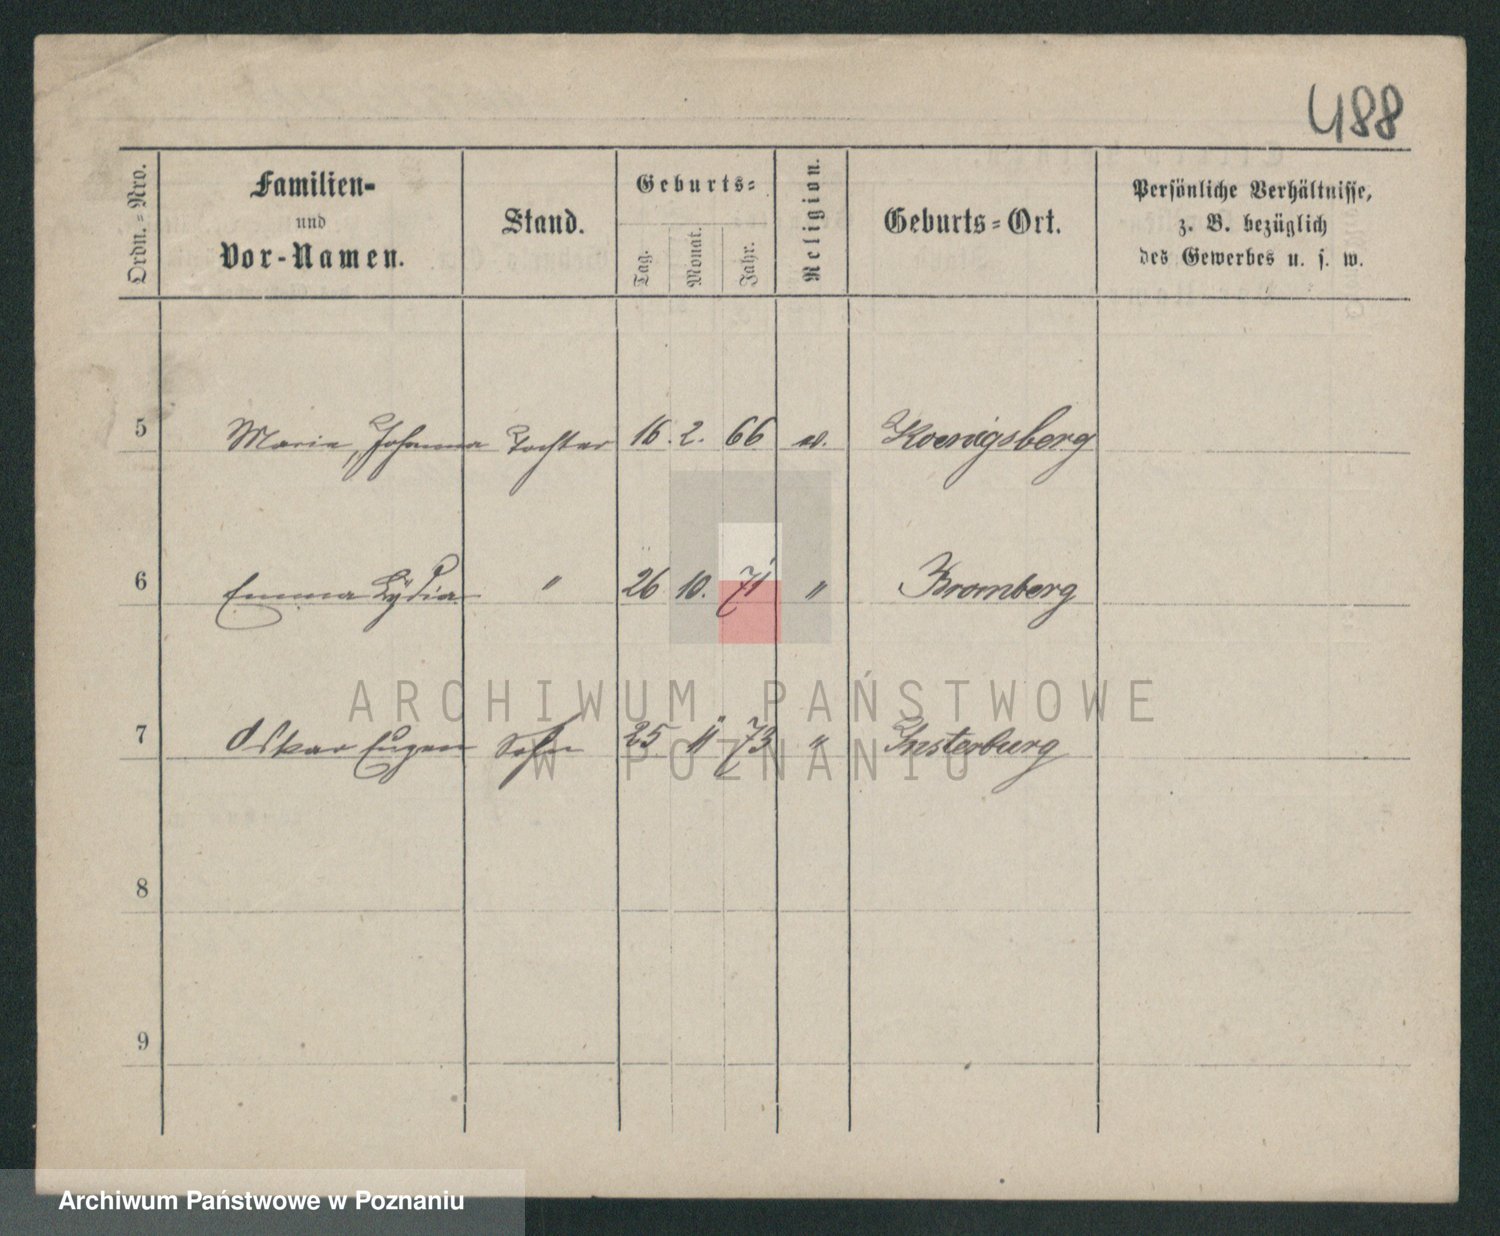 488
Ordn.-Nro.
Familien-
und
Vor-Namen.
Stand.
Geburts-
Tag.
Monat.
Jahr.
Religion.
Geburts-Ort.
Persönliche Verhältnisse,
z. B. bezüglich
des Gewerbes u. s. w.
5 Marie, Johanna Tochter 16. 2. 66 ev. Koenigsberg
6 Emma Lydia " 26 10. 71 " Bromberg
7 Oskar Eugen Sohn 25 11 73 " Insterburg
8
9
ARCHIWUM PAŃSTWOWE
W POZNANIU
Archiwum Państwowe w Poznaniu